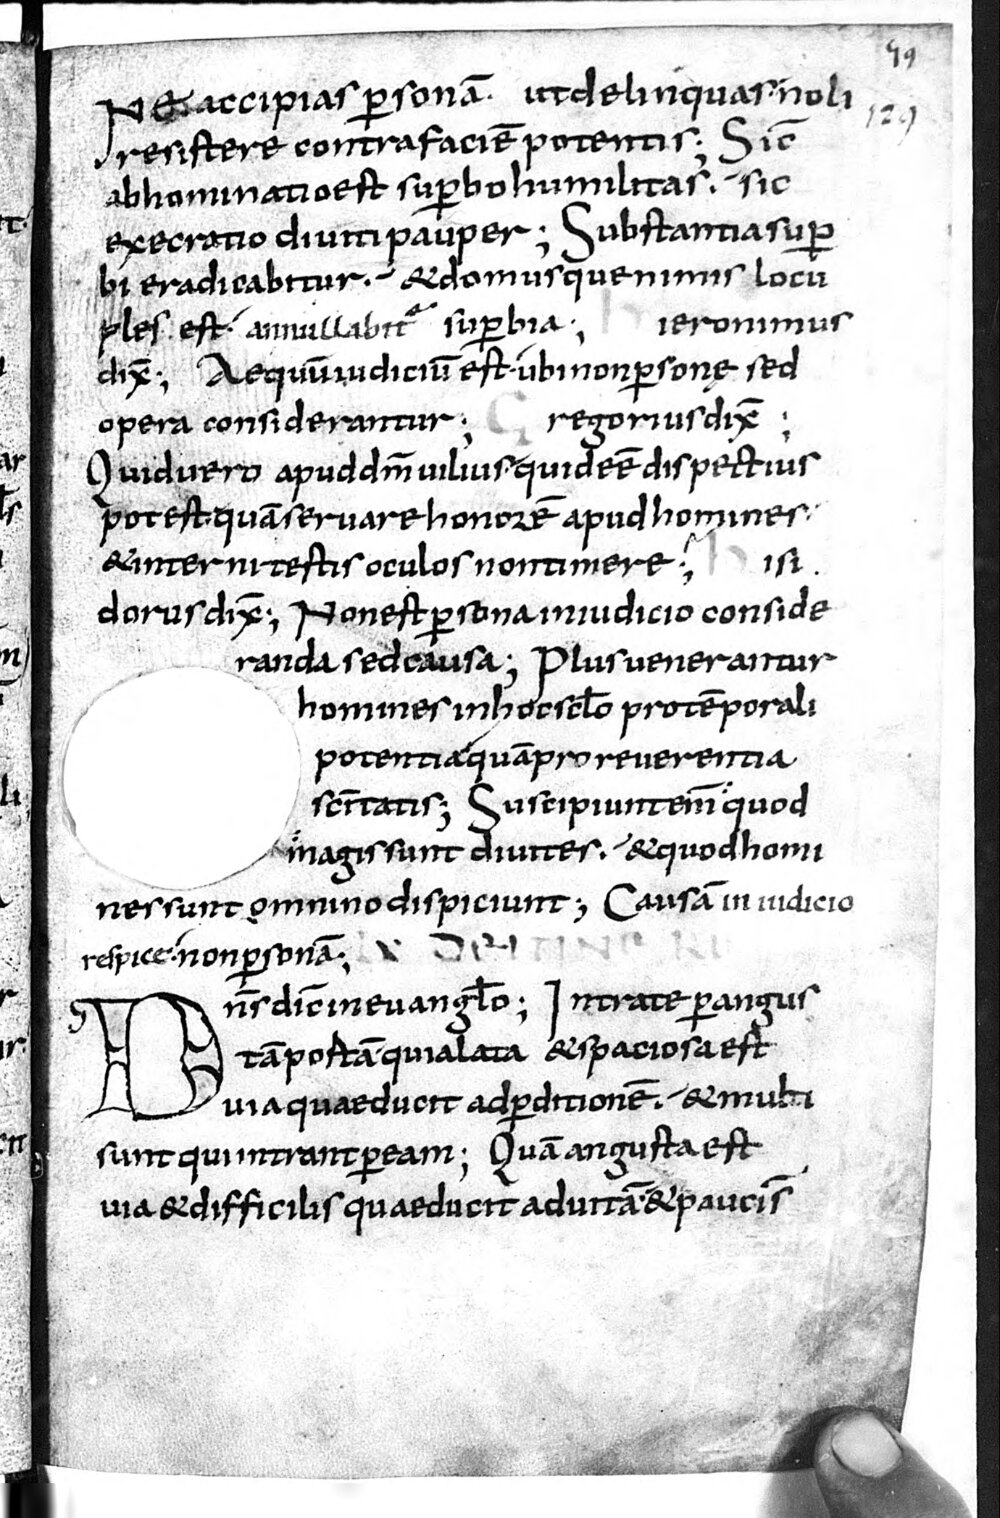 59
129
Ne accipias ꝑsonā. ut delinquas. noli
resistere contra faciē potentis; Sic̄
abhominatio est suꝑbo humilitas. sic
execratio diuiti pauper; Substantia suꝑ
bi eradicabitur. & domus que nimis locu
ples est. annullabit̄ᵃ suꝑbia; hieronimus
dix̄; Aequū iudiciū est. ubi non ꝑsonę sed
opera considerantur; Gregorius dix̄;
Quid uero apud dm̄ uilius. quid eē dispectius
potest. quā seruare honorē apud homines
& interni testis oculos non timere; hisi
dorus dix̄; Non est ꝑsona in iudicio conside
randa sed causa; Plus uenerantur
homines in hoc sc̄lo pro tēporali
potentia quā pro reuerentia
sc̄itatis; Suscipiunt em̄ quod
magis sunt diuites. & quod homi
nes sunt omnino dispiciunt; Causā in iudicio
respice. non ꝑsonā;
Dn̄s dic̄ in euangl̄o; Intrate ꝑ angus
tā postā quia lata & spaciosa est
uia quae ducit ad ꝑditionē. & multi
sunt qui intrant ꝑ eam; Quā angusta est
uia & difficilis quae ducit ad uitā. & pauci s̄